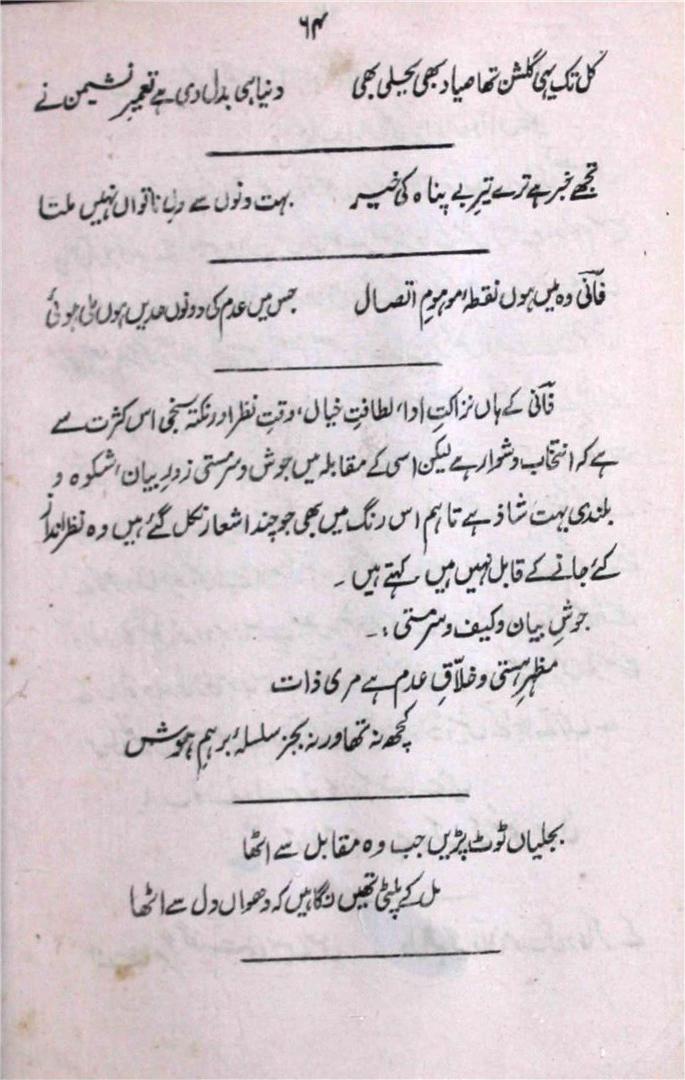 ۶۴
کل تک یہی گلشن تھا صیاد بھی بجلی بھی دنیا ہی بدل دی ہے تعمیرِ نشیمن نے
تجھے خبر ہے ترے تیرِ بے پناہ کی خیر بہت دنوں سے دلِ ناتواں نہیں ملتا
فانی وہ میں ہوں نقطۂ موہومِ اتصال جس میں عدم کی دونوں حدیں ہوں ملی ہوئی
فانی کے ہاں نزاکتِ ادا، لطافتِ خیال، وقتِ نظر اور نکتہ سنجی اس کثرت سے
ہے کہ انتخاب دشوار ہے لیکن اسی کے مقابلہ میں جوش و سرمستی زورِ بیان، شکوہ و
بلندی بہت شاذ ہے تاہم اس رنگ میں بھی جو چند اشعار نکل گئے ہیں وہ نظر انداز
کئے جانے کے قابل نہیں ہیں کہتے ہیں ۔
جوشِ بیان و کیف و سرمستی :۔
مظہرِ ہستی و خلاقِ عدم ہے مری ذات
کچھ نہ تھا ورنہ بجز سلسلۂ برہم ہوش
بجلیاں ٹوٹ پڑیں جب وہ مقابل سے اٹھا
مل کے پلٹی تھیں نگاہیں کہ دھواں دل سے اٹھا